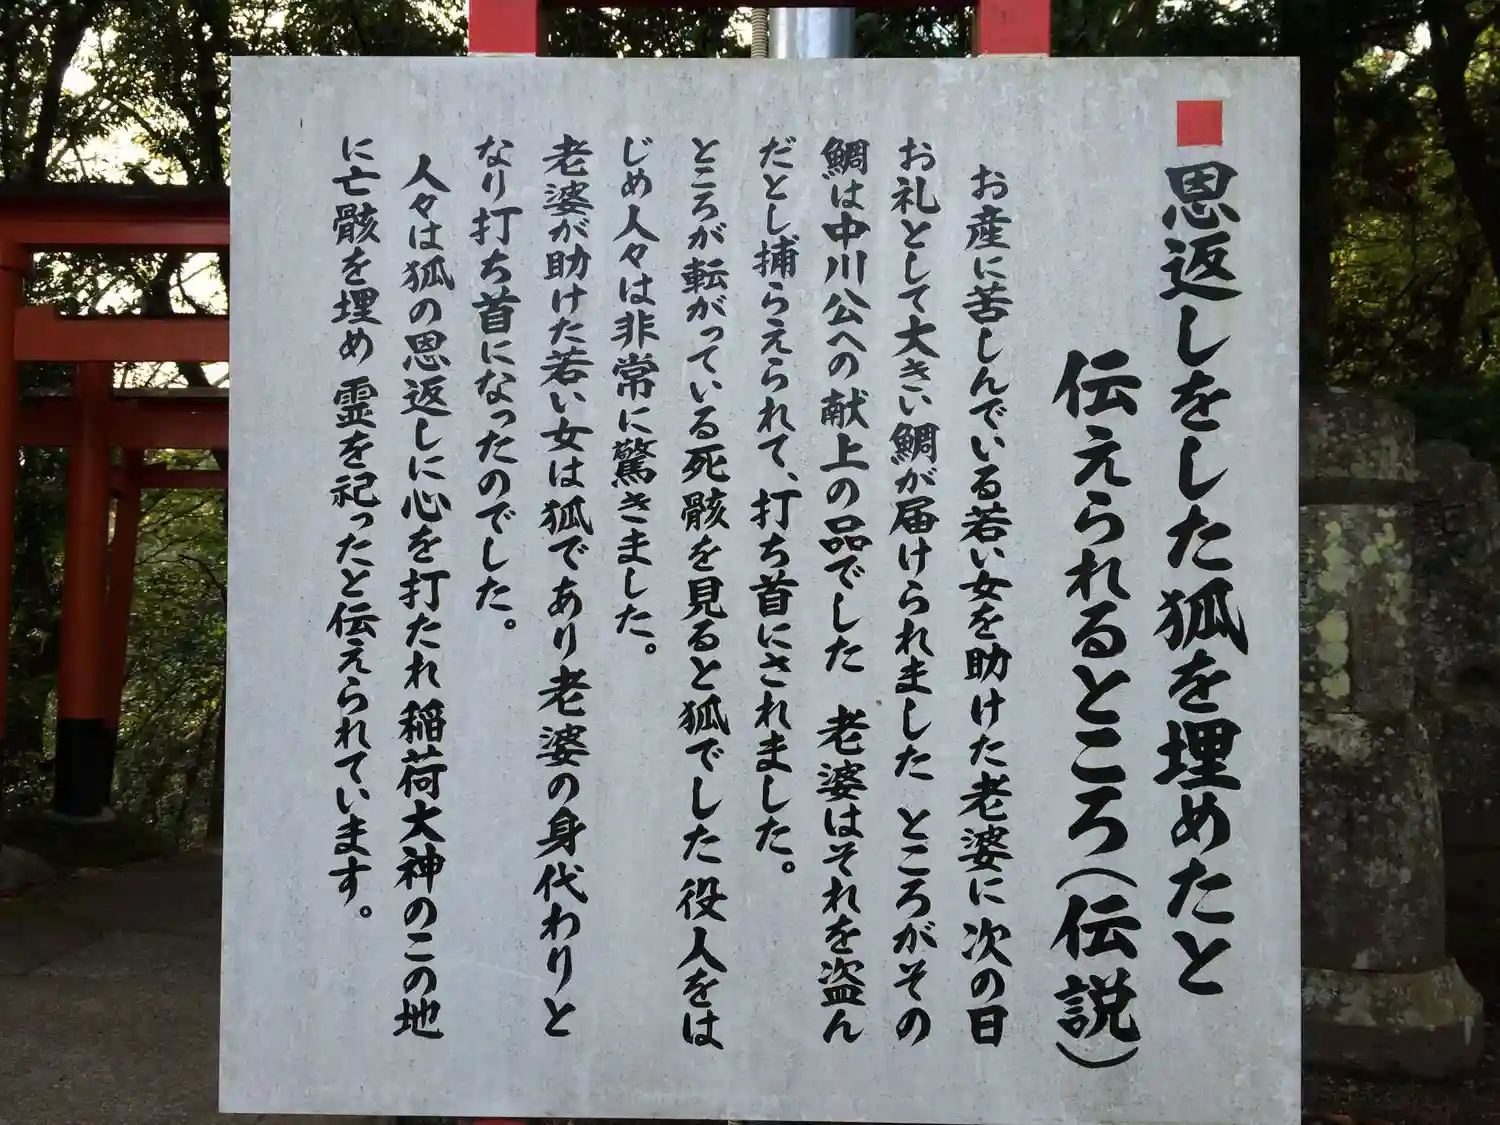 恩返しをした狐を埋めたと
伝えられるところ(伝説)
お産に苦しんでいる若い女を助けた老婆に次の日
お礼として大きい鯛が届けられました ところがその
鯛は中川公への献上の品でした 老婆はそれを盗ん
だとし捕らえられて、打ち首にされました。
ところが転がっている死骸を見ると狐でした役人をは
じめ人々は非常に驚きました。
老婆が助けた若い女は狐であり老婆の身代わりと
なり打ち首になったのでした。
人々は狐の恩返しに心を打たれ稲荷大神のこの地
に亡骸を埋め 霊を祀ったと伝えられています。